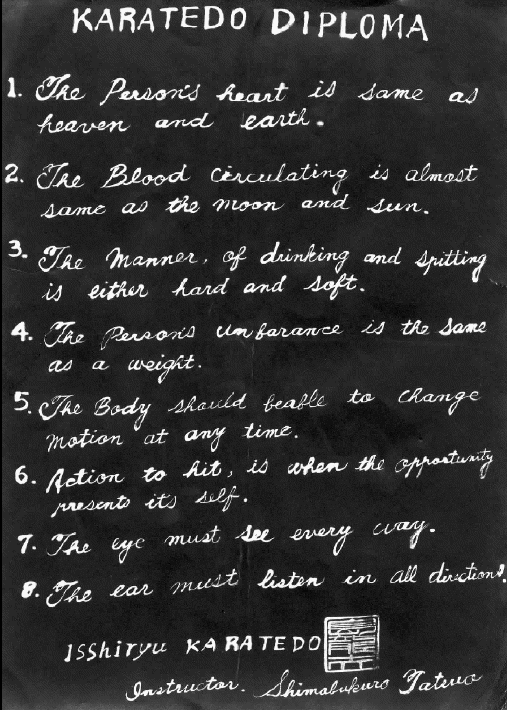 KARATEDO DIPLOMA
1. The Person's heart is same as
heaven and earth.
2. The Blood circulating is almost
same as the moon and sun.
3. The Manner, of drinking and spitting
is either hard and soft.
4. The Person's umbarance is the same
as a weight.
5. The Body should beable to change
motion at any time.
6. Action to hit, is when the opportunity
presents its self.
7. The eye must see every way.
8. The ear must listen in all directions.
Isshiryu KARATEDO
Instructor. Shimabukuro Tatsuo